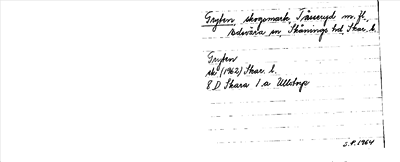 Gryten, skogsmark, Tåseryd m. fl.,
Edsvära sn, Skånings hd, Skar. l.
Gryten
sk (1962) Skar. l.
8 D Skara 1 a Ullstorp
S.F. 1964